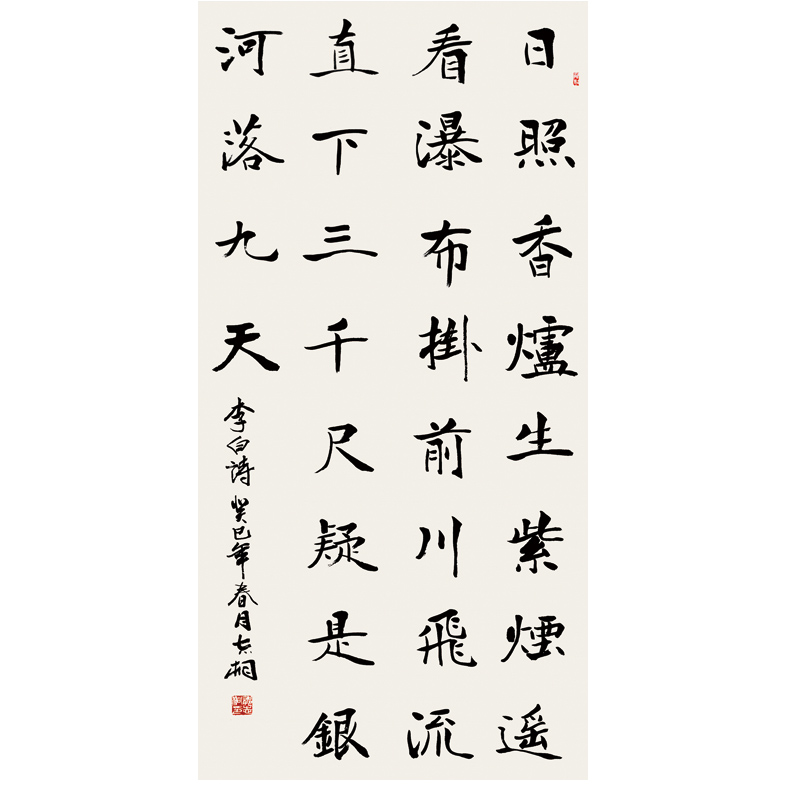 日照香爐生紫煙遥
看瀑布掛前川飛流
直下三千尺疑是銀
河落九天
李白詩癸巳年春月志桐